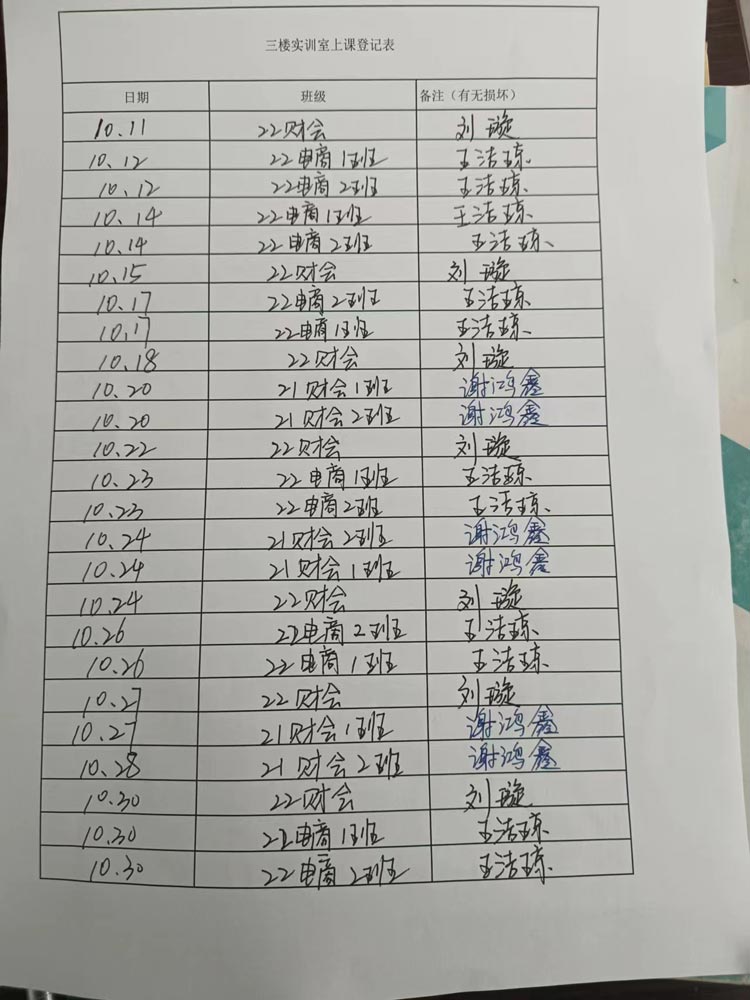 三楼实训室上课登记表
日期 班级 备注（有无损坏）
10.11 22财会 刘璇
10、12 22电商1班 王洁琼
10、12 22电商2班 王洁琼
10、14 22电商1班 王洁琼
10、14 22电商2班 王洁琼
10、15 22财会 刘璇
10.17 22电商2班 王洁琼
10.17 22电商1班 王洁琼
10.18 22财会 刘璇
10.20 21财会1班 谢鸿鑫
10.20 21财会2班 谢鸿鑫
10.22 22财会 刘璇
10.23 22电商1班 王洁琼
10.23 22电商2班 王洁琼
10.24 21财会2班 谢鸿鑫
10.24 21财会1班 谢鸿鑫
10.24 22财会 刘璇
10.26 22电商2班 王洁琼
10.26 22电商1班 王洁琼
10.27 22财会 刘璇
10.27 21财会1班 谢鸿鑫
10.28 21财会2班 谢鸿鑫
10.30 22财会 刘璇
10.30 22电商1班 王洁琼
10.30 22电商2班 王洁琼